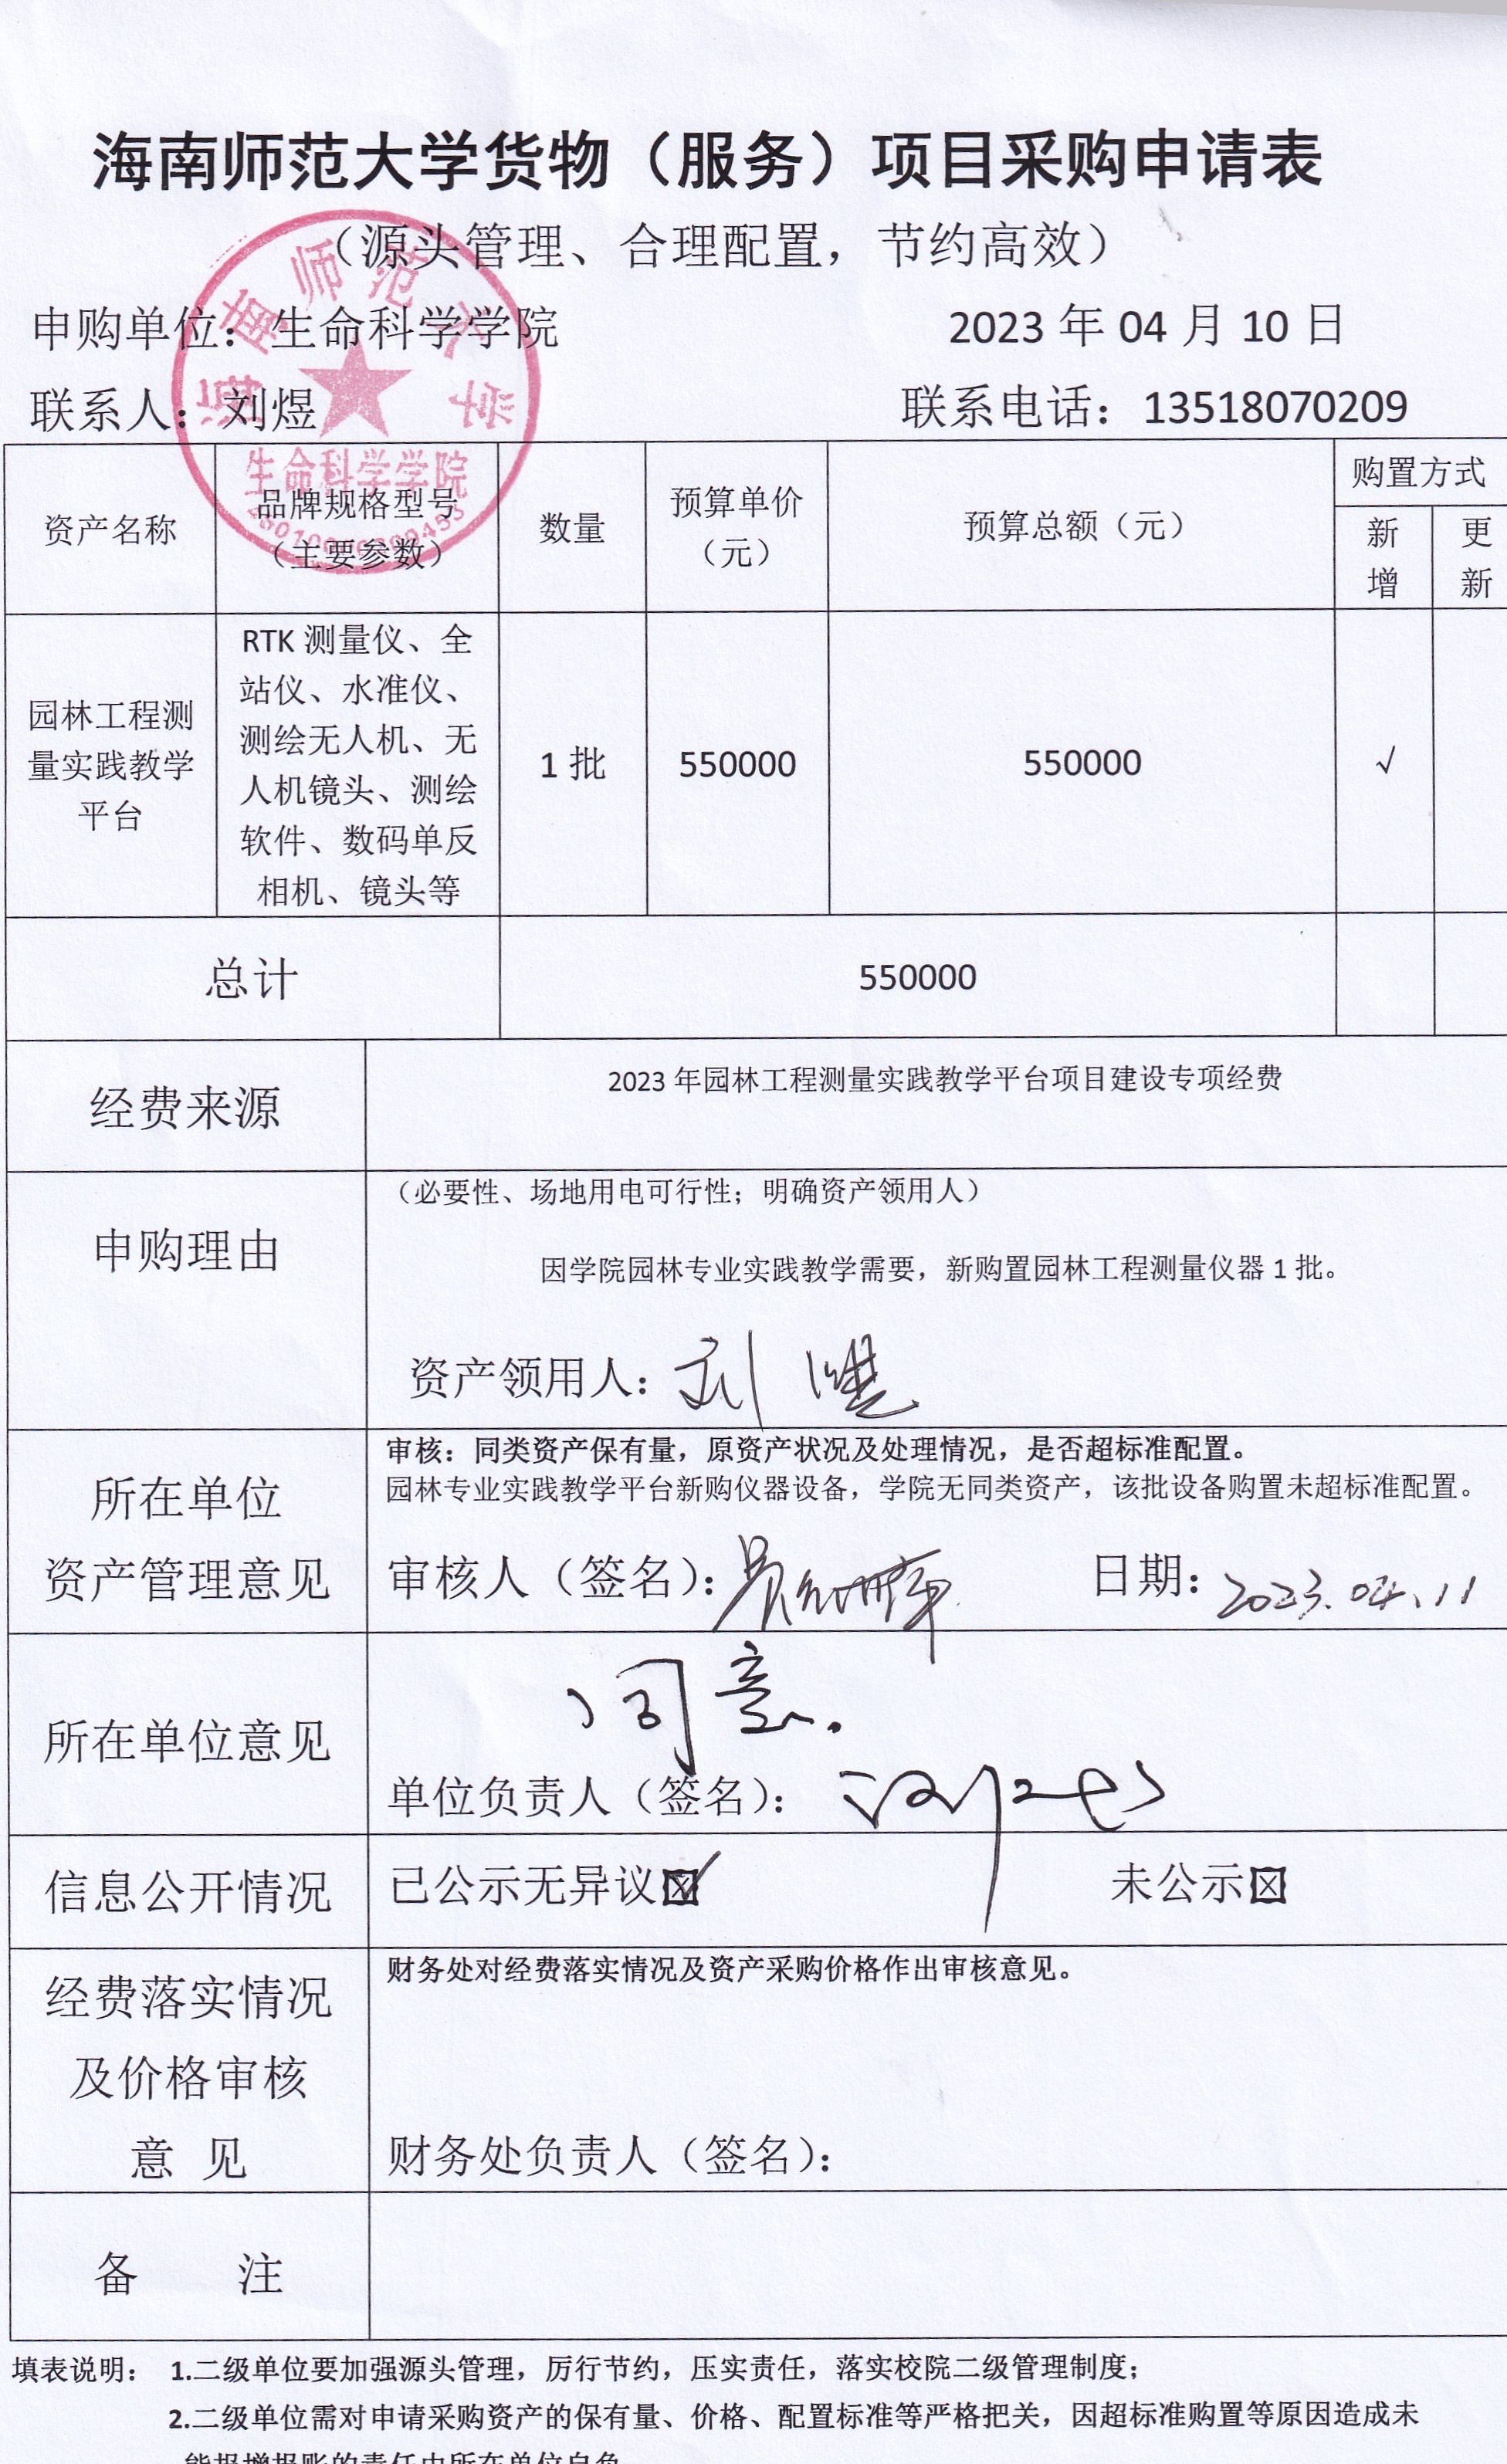 海南师范大学货物（服务）项目采购申请表
（源头管理、合理配置，节约高效）
申购单位：生命科学学院 2023 年 04 月 10 日
联系人：刘煜 联系电话：13518070209
海南师范大学
生命科学学院
资产名称
品牌规格型号
（主要参数）
数量
预算单价
（元）
预算总额（元）
购置方式
新
增
更
新
园林工程测
量实践教学
平台
RTK 测量仪、全
站仪、水准仪、
测绘无人机、无
人机镜头、测绘
软件、数码单反
相机、镜头等
1 批
550000
550000
√
总计
550000
经费来源
2023 年园林工程测量实践教学平台项目建设专项经费
申购理由
（必要性、场地用电可行性；明确资产领用人）
因学院园林专业实践教学需要，新购置园林工程测量仪器 1 批。
资产领用人：刘煜
所在单位
资产管理意见
审核：同类资产保有量，原资产状况及处理情况，是否超标准配置。
园林专业实践教学平台新购仪器设备，学院无同类资产，该批设备购置未超标准配置。
审核人（签名）： 日期：2023.04.11
所在单位意见
同意.
单位负责人（签名）：
信息公开情况
已公示无异议☒✓ 未公示☒
经费落实情况
及价格审核
意 见
财务处对经费落实情况及资产采购价格作出审核意见。
财务处负责人（签名）：
备 注
填表说明： 1.二级单位要加强源头管理，厉行节约，压实责任，落实校院二级管理制度；
2.二级单位需对申请采购资产的保有量、价格、配置标准等严格把关，因超标准购置等原因造成未
能报增报账的责任由所在单位自负